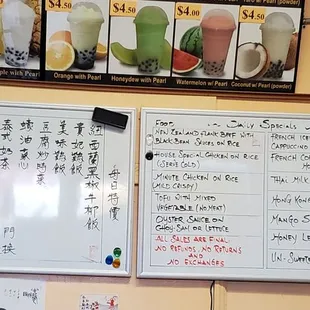 $4.50
$4.50
$4.50
$4.50
with Pearl
Orange with Pearl
Honeydew with Pearl
Watermelon w/ Pearl
Coconut w/ Pearl (powder)
每日特價
紐西蘭黑椒牛柳飯
貴妃鷄飯
美味鷄飯
豆腐炒時菜
蠔油菜心
泰式奶茶
FOOD Daily Specials
NEW ZEALAND FLANK BEEF WITH
BLACK BEAN SAUCES ON RICE
HOUSE SPECIAL CHICKEN ON RICE
(SERVE COLD)
MINUTE CHICKEN ON RICE
(MILD CRISPY)
TOFU WITH MIXED
VEGETABLE (NO MEAT)
OYSTER SAUCE ON
CHOY-SAM OR LETTUCE
ALL SALES ARE FINAL
NO REFUNDS, NO RETURNS
AND
NO EXCHANGES
FRENCH ICE
CAPPUCCINO
FRENCH CO
THAI MILK
HONG KONG
MANGO S
HONEY LE
UN-SWEETE